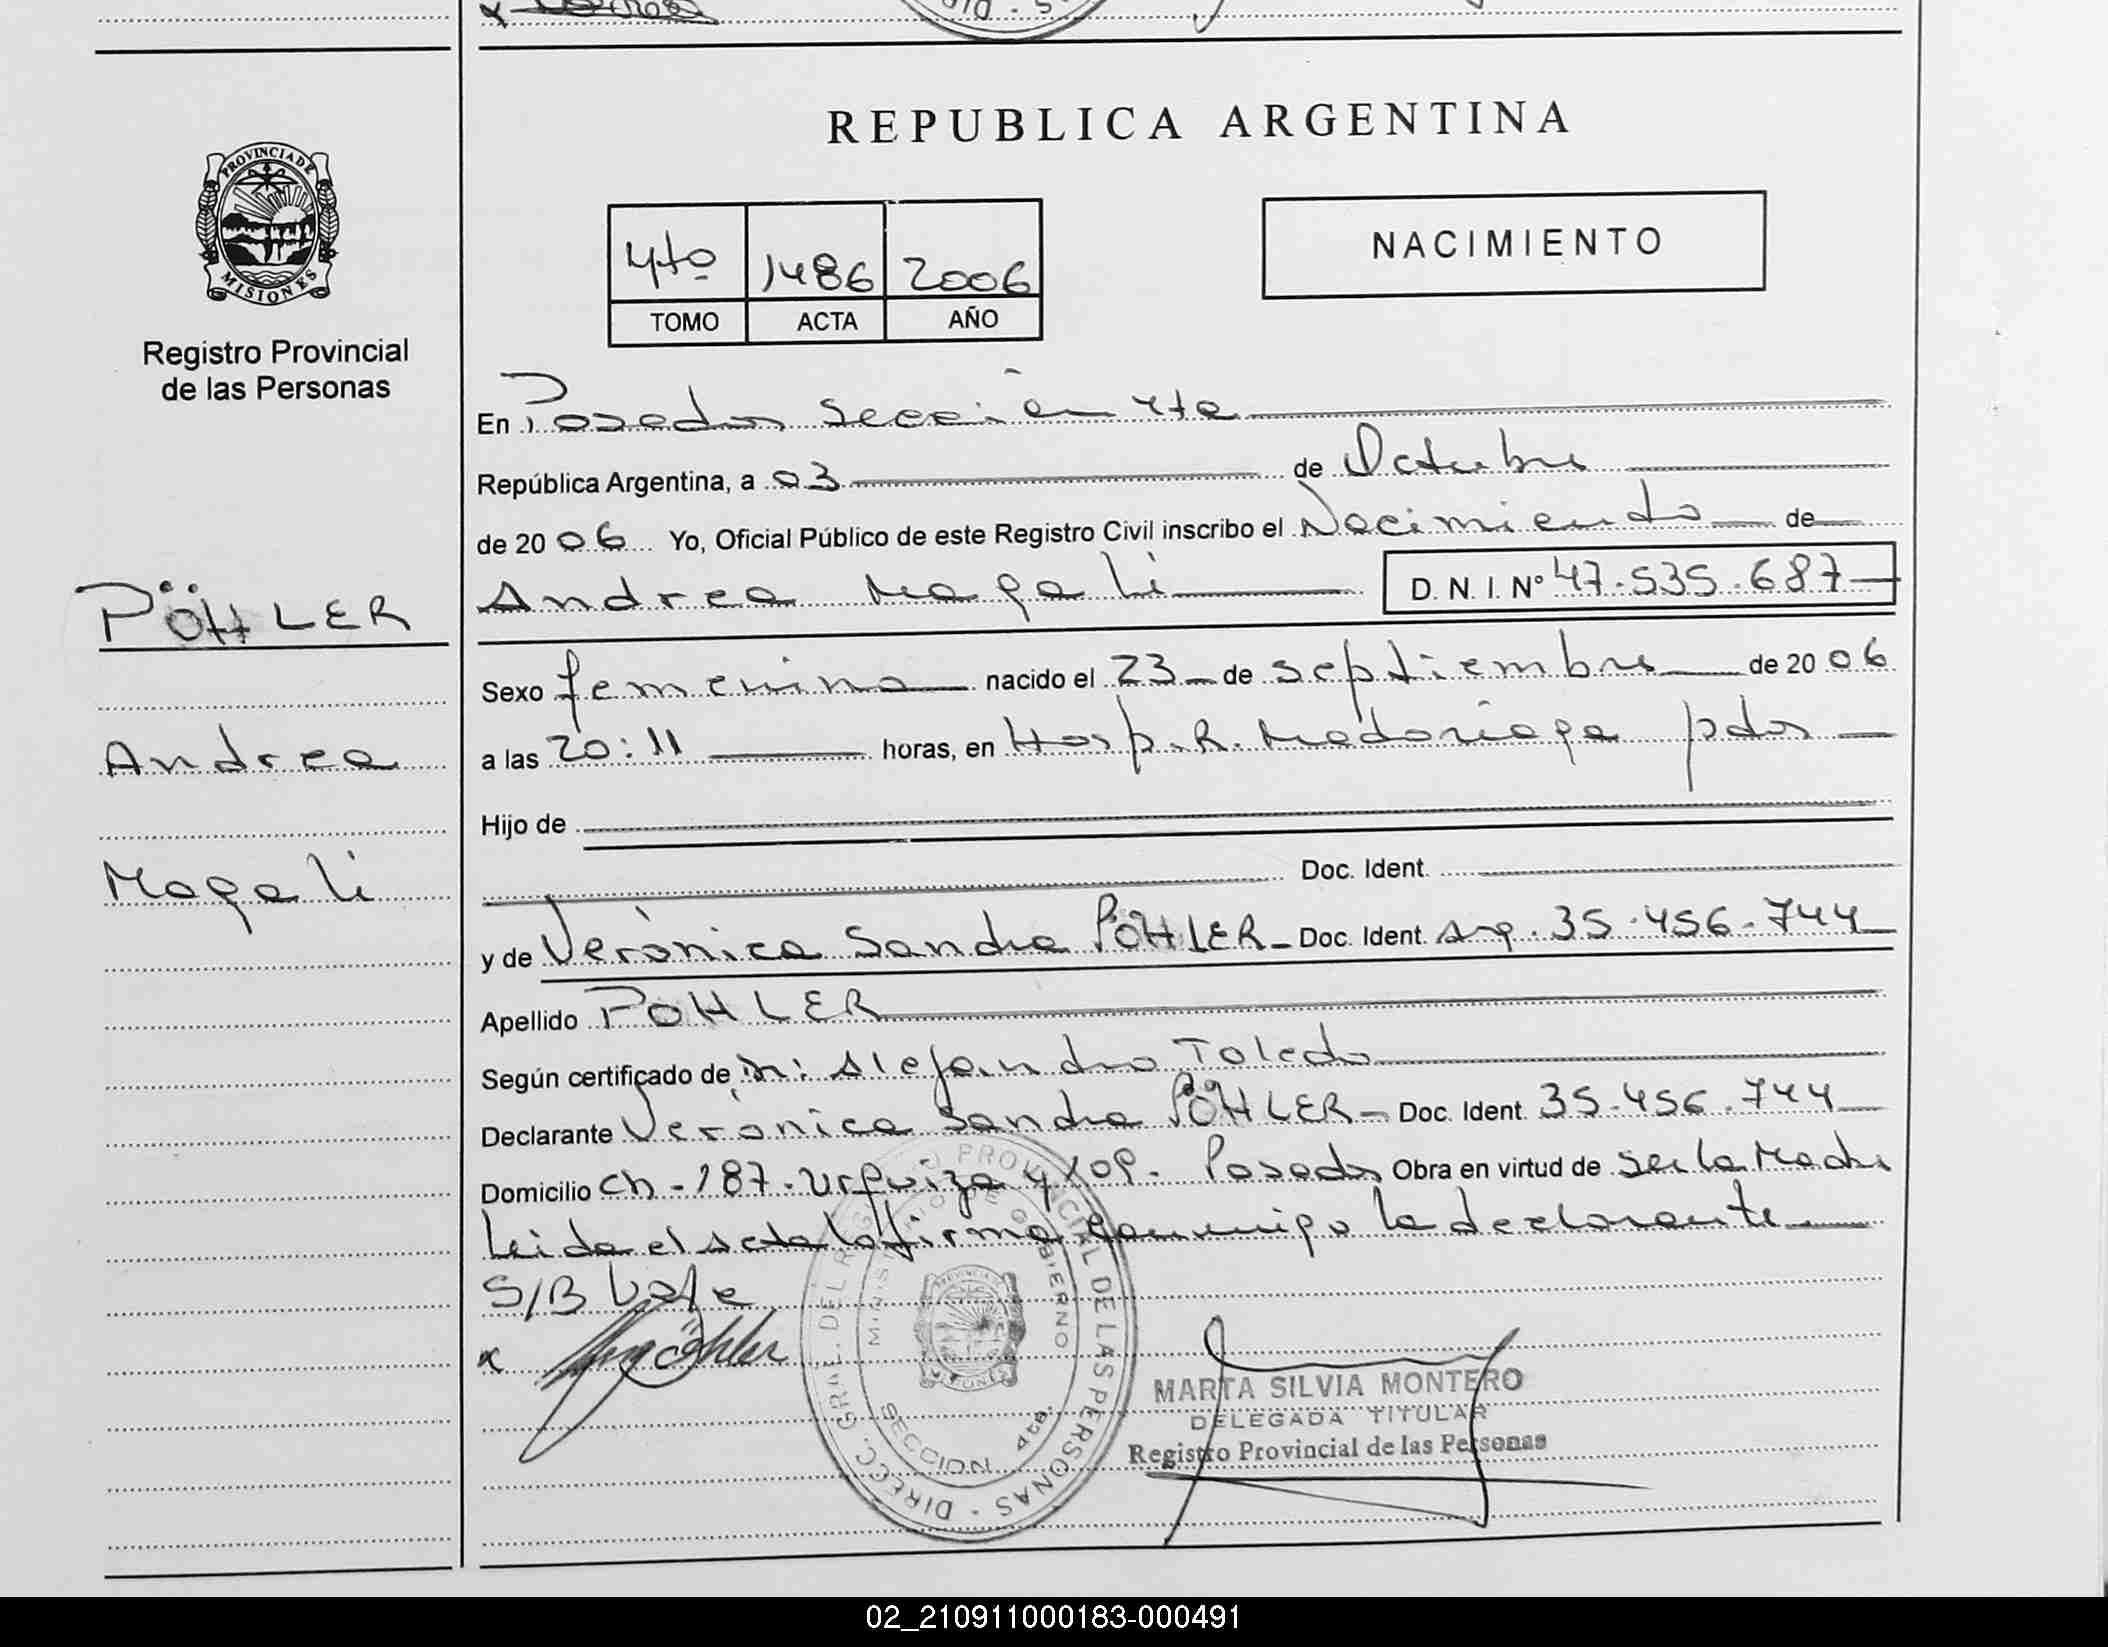 PROVINCIA DE
MISIONES
Registro Provincial
de las Personas
PÖHLER
Andrea
Magali
REPUBLICA ARGENTINA
4to 1486 2006
TOMO ACTA AÑO
NACIMIENTO
En Posadas Sección 4ta
República Argentina, a 03 de Octubre
de 2006 Yo, Oficial Público de este Registro Civil inscribo el Nacimiento de
Andrea Magali D. N. I. Nº 47.535.687
Sexo femenino nacido el 23 de septiembre de 2006
a las 20:11 horas, en Hosp. R. Madariaga pdas
Hijo de
Doc. Ident.
y de Verónica Sandra PÖHLER Doc. Ident. Arg. 35.456.744
Apellido PÖHLER
Según certificado de Dr: Alejandro Toledo
Declarante Verónica Sandra PÖHLER Doc. Ident. 35.456.744
Domicilio Ch - 187. Urquiza y Posadas Obra en virtud de ser la Madre
Leida el acta la firma conmigo la declarante
S/B Vale
x Pöhler
DIRECC. GRAL. DEL REGISTRO PROVINCIAL DE LAS PERSONAS
MINISTERIO DE GOBIERNO
SECCION 4ta.
MARTA SILVIA MONTERO
DELEGADA TITULAR
Registro Provincial de las Personas
02_210911000183-000491